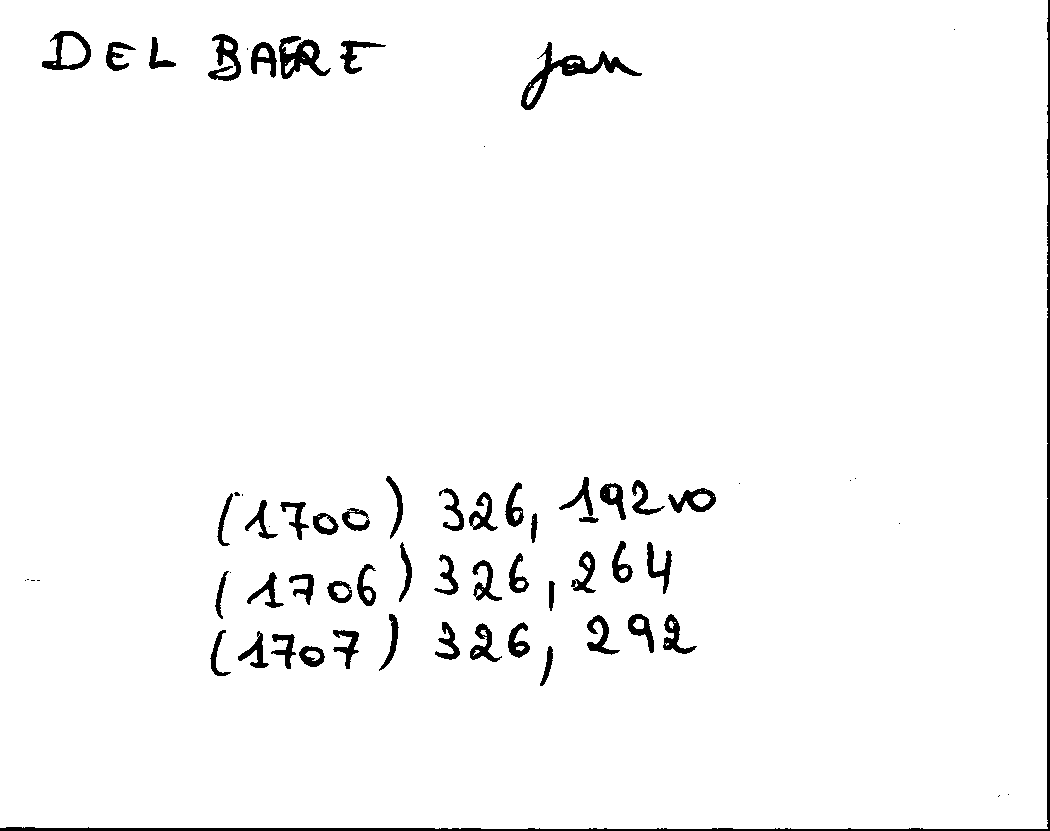 DEL BAERE Jan
(1700) 326, 192vo
(1706) 326, 264
(1707) 326, 292